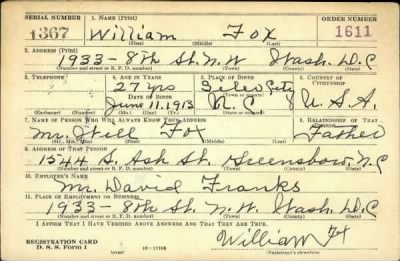 SERIAL NUMBER 1. NAME (Print) ORDER NUMBER
1367 William Fox 1611
(First) (Middle) (Last)
2. ADDRESS (Print)
1933-8th St. N.W Wash. D.C
(Number and street or R. F. D. number) (Town) (County) (State)
3. TELEPHONE 4. AGE IN YEARS 5. PLACE OF BIRTH 6. COUNTRY OF CITIZENSHIP
27 yrs Siler City
DATE OF BIRTH (Town or county)
June 11, 1913 N.C. U.S.A.
(Exchange) (Number) (Mo.) (Day) (Yr.) (State or country)
7. NAME OF PERSON WHO WILL ALWAYS KNOW YOUR ADDRESS 8. RELATIONSHIP OF THAT PERSON
Mr. Will Fox Father
(Mr., Mrs., Miss) (First) (Middle) (Last)
9. ADDRESS OF THAT PERSON
1544 S. Ash St. Greensboro, N.C
(Number and street or R. F. D. number) (Town) (County) (State)
10. EMPLOYER'S NAME
Mr. David Franks
11. PLACE OF EMPLOYMENT OR BUSINESS
1933-8th St. N.W. Wash. D.C
(Number and street or R. F. D. number) (Town) (County) (State)
I AFFIRM THAT I HAVE VERIFIED ABOVE ANSWERS AND THAT THEY ARE TRUE.
REGISTRATION CARD
D. S. S. Form 1 16-17105 William Fox
(Registrant's signature)